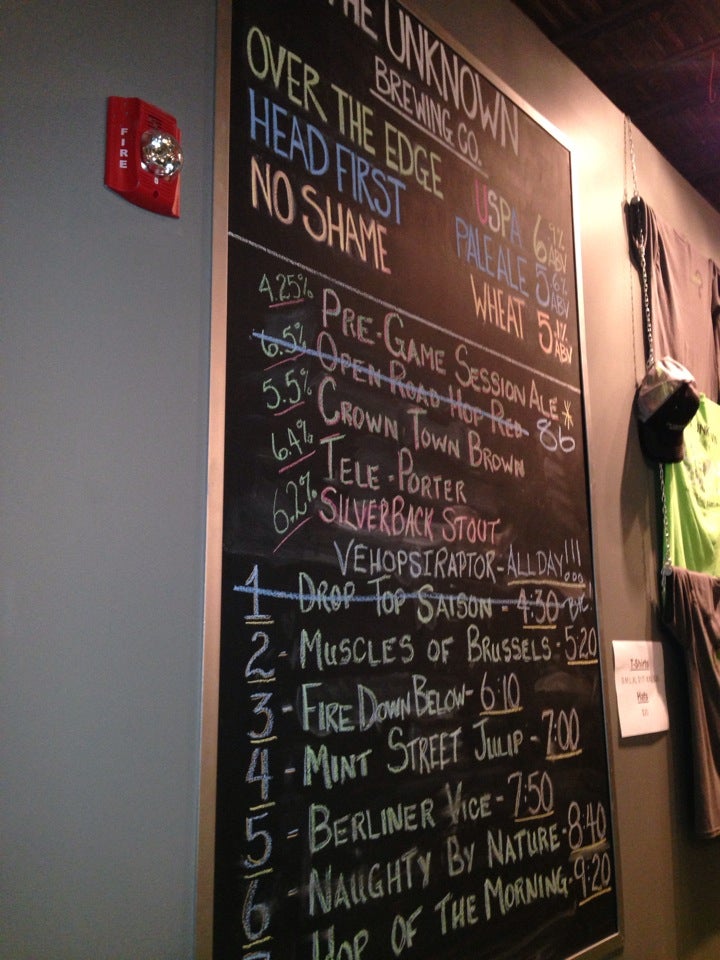 THE UNKNOWN
BREWING CO.
OVER THE EDGE USPA 6.9% ABV
HEAD FIRST PALE ALE 5.6% ABV
NO SHAME WHEAT 5.1% ABV
4.25% PRE-GAME SESSION ALE *
6.5% OPEN ROAD HOP RED 86
5.5% CROWN TOWN BROWN
6.4% TELE-PORTER
6.2% SILVERBACK STOUT
VEHOPSIRAPTOR-ALL DAY!!!
1 - DROP TOP SAISON - 4:30
2 - MUSCLES OF BRUSSELS - 5:20
3 - FIRE DOWN BELOW - 6:10
4 - MINT STREET JULIP - 7:00
5 - BERLINER VICE - 7:50
6 - NAUGHTY BY NATURE - 8:40
HOP OF THE MORNING - 9:20
FIRE
T-Shirts
Hats